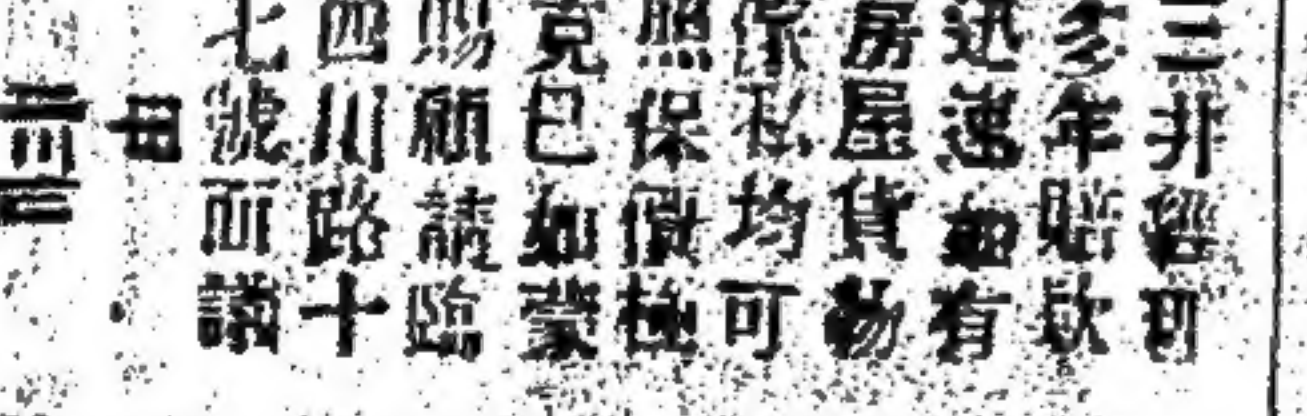 三井經司
多年賠欵
迅速如有
房屋貨物
傢私均可
照保價極
克已如蒙
賜顧請臨
四川路十
七號面議